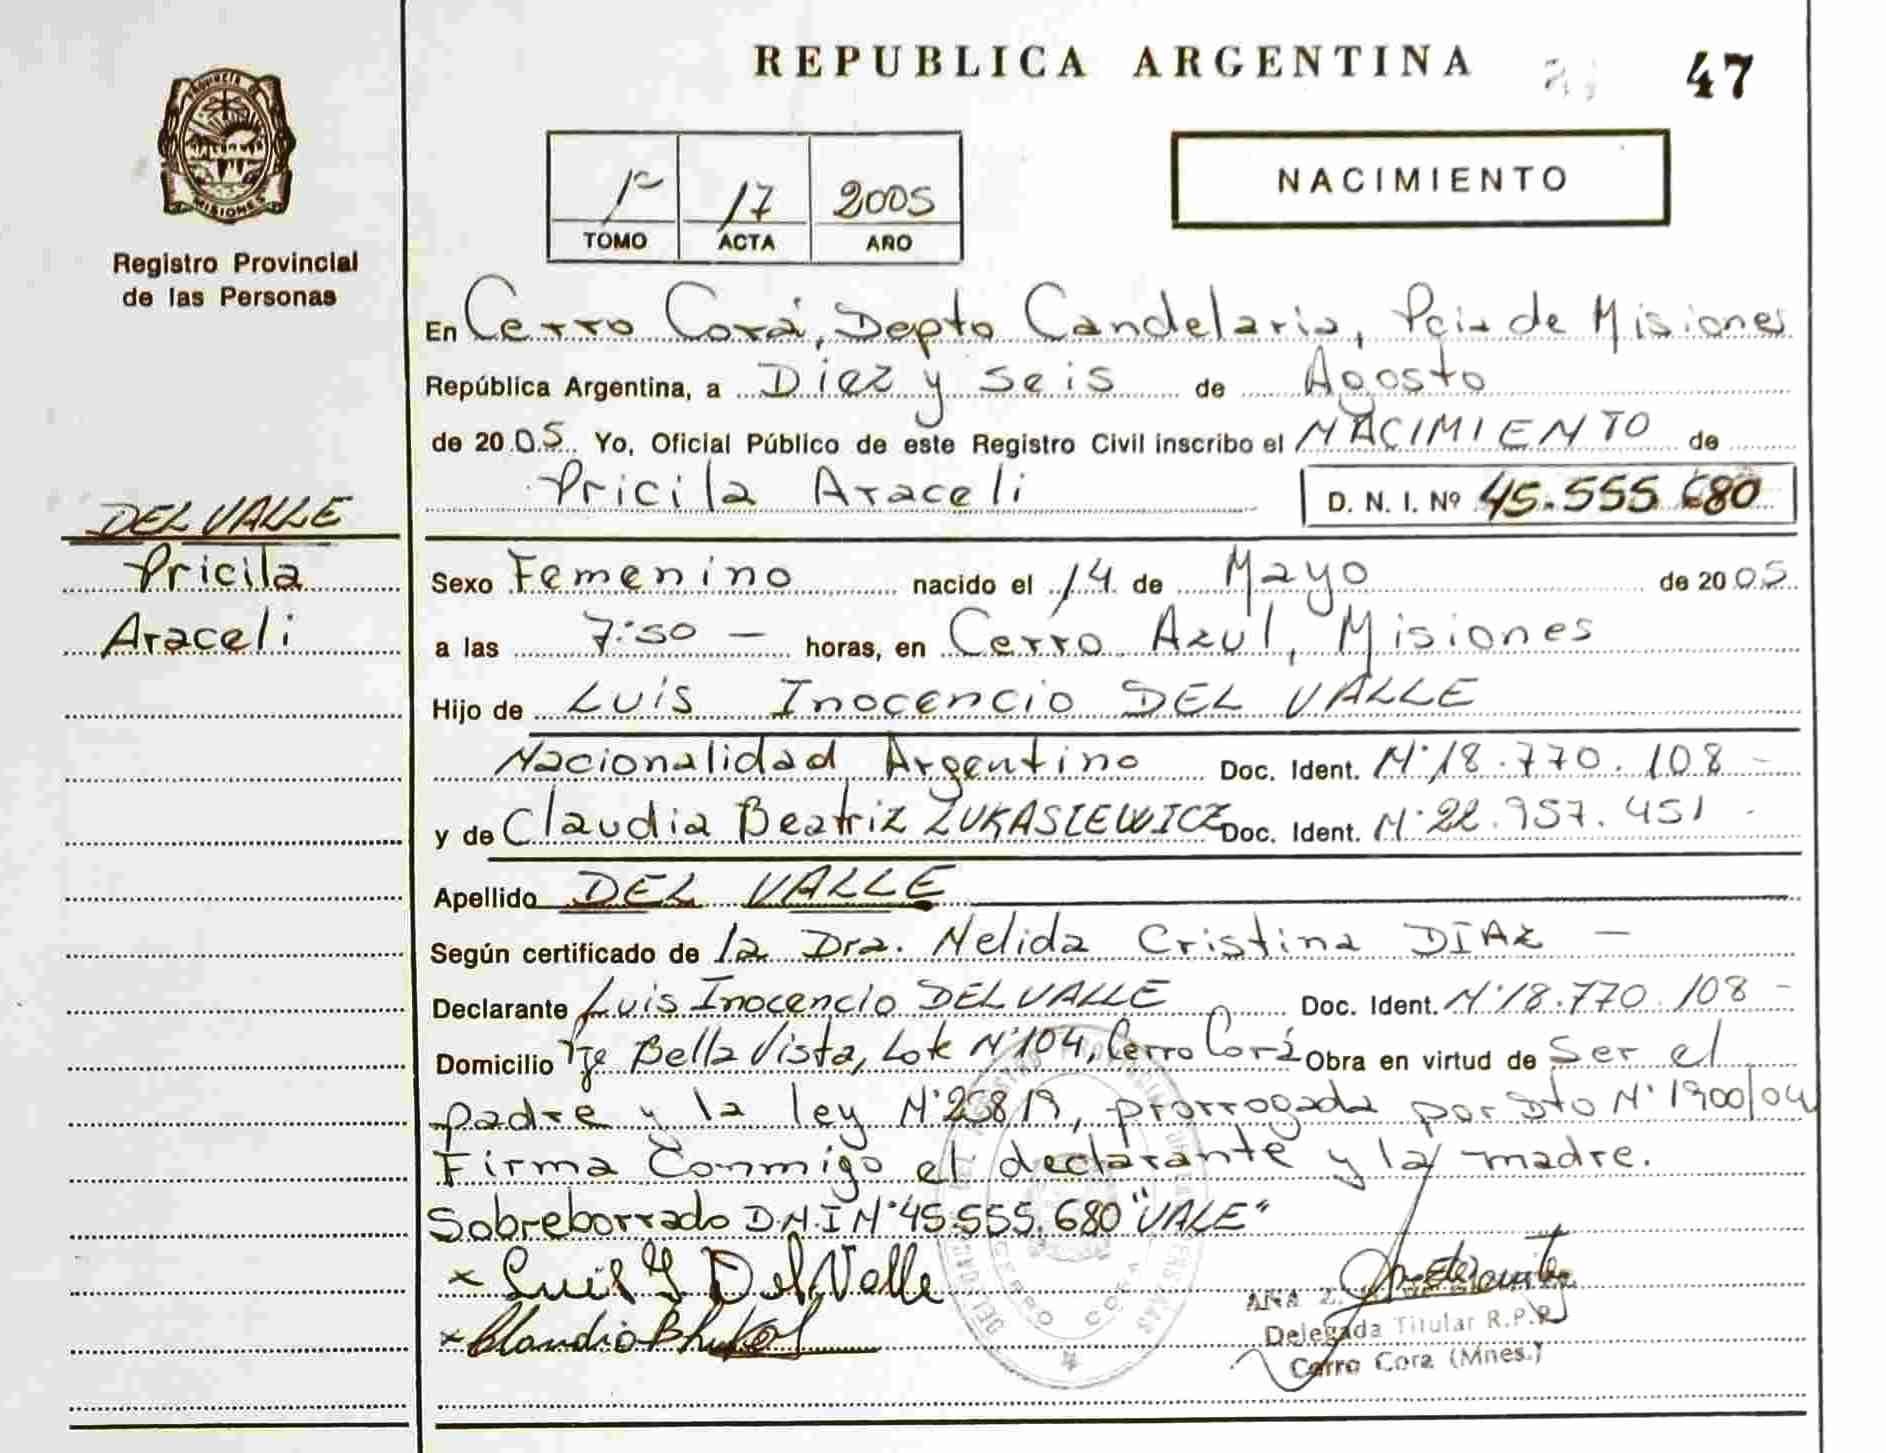 REPUBLICA ARGENTINA
47
PROVINCIA DE
MISIONES
Registro Provincial
de las Personas
1º 17 2005
TOMO ACTA AÑO
NACIMIENTO
En Cerro Corá, Depto Candelaria, Pcia de Misiones
República Argentina, a Diez y seis de Agosto
de 2005 Yo, Oficial Público de este Registro Civil inscribo el NACIMIENTO de
Pricila Araceli D. N. I. Nº 45.555.680
DEL VALLE
Pricila
Araceli
Sexo Femenino nacido el 14 de Mayo de 2005
a las 7:50 — horas, en Cerro Azul, Misiones
Hijo de Luis Inocencio DEL VALLE
Nacionalidad Argentino Doc. Ident. Nº 18.770.108 -
y de Claudia Beatriz ZUKASIEWICZ Doc. Ident. Nº 22.957.451 -
Apellido DEL VALLE
Según certificado de la Dra. Nelida Cristina DIAZ —
Declarante Luis Inocencio DEL VALLE Doc. Ident. Nº 18.770.108 -
Domicilio Bella Vista, Lote Nº 104, Cerro Corá Obra en virtud de Ser el
padre y la ley Nº 25819, prorrogada por Dto Nº 1900/04
Firma Conmigo el declarante y la madre.
Sobreborrado D.N.I Nº 45.555.680 "VALE"
x Luis I Del Valle
x Claudia B
ANA
Delegada Titular R.P.P.
Cerro Cora (Mnes.)
CERRO CORA